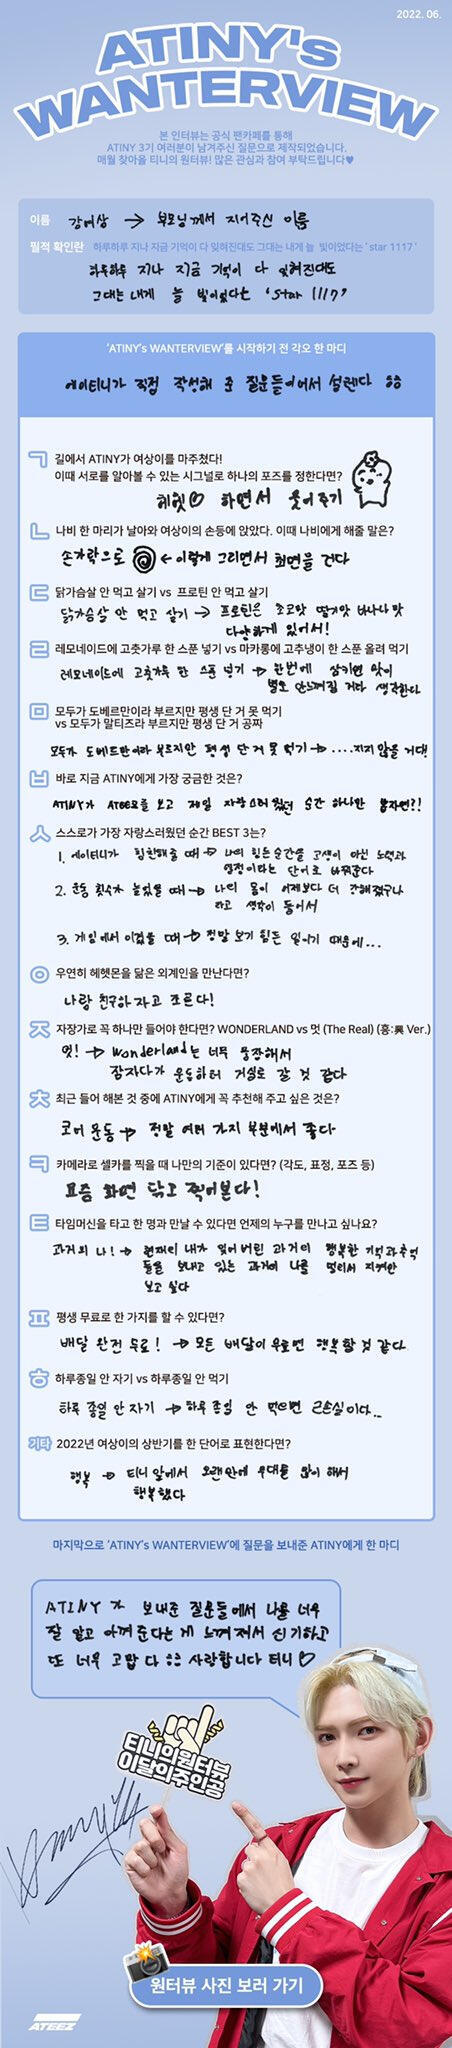 2022. 06.
ATINY's
WANTERVIEW
본 인터뷰는 공식 팬카페를 통해
ATINY 3기 여러분이 남겨주신 질문으로 제작되었습니다.
매월 찾아올 티니의 원터뷰! 많은 관심과 참여 부탁드립니다♥
이름 강여상 → 부모님께서 지어주신 이름
필적 확인란 하루하루 지나 지금 기억이 다 잊혀진대도 그대는 내게 늘 빛이었다는 ' star 1117 '
하루하루 지나 지금 기억이 다 잊혀진대도
그대는 내게 늘 빛이었다는 'Star 1117'
'ATINY's WANTERVIEW'를 시작하기 전 각오 한 마디
에이티니가 직접 작성해 준 질문들이어서 설렌다
ㄱ 길에서 ATINY가 여상이를 마주쳤다!
이때 서로를 알아볼 수 있는 시그널로 하나의 포즈를 정한다면?
헤헷♡ 하면서 웃어주기
ㄴ 나비 한 마리가 날아와 여상이의 손등에 앉았다. 이때 나비에게 해줄 말은?
손가락으로 ← 이렇게 그리면서 최면을 건다
ㄷ 닭가슴살 안 먹고 살기 vs 프로틴 안 먹고 살기
닭가슴살 안 먹고 살기 → 프로틴은 초코맛 딸기맛 바나나맛
다양하게 있어서!
ㄹ 레모네이드에 고춧가루 한 스푼 넣기 vs 마카롱에 고추냉이 한 스푼 올려 먹기
레모네이드에 고춧가루 한 스푼 넣기 → 한번에 삼키면 맛이
별로 안느껴질 거다 생각한다
ㅁ 모두가 도베르만이라 부르지만 평생 단 거 못 먹기
vs 모두가 말티즈라 부르지만 평생 단 거 공짜
모두가 도베르만이라 부르지만 평생 단 거 못 먹기 → ....지지 않을 거다!
ㅂ 바로 지금 ATINY에게 가장 궁금한 것은?
ATINY가 ATEEZ를 보고 제일 자랑스러웠던 순간 하나만 뽑자면?!
ㅅ 스스로가 가장 자랑스러웠던 순간 BEST 3는?
1. 에이티니가 칭찬해줄 때 → 나의 힘든순간을 고생이 아닌 노력과
열정이라는 단어로 바꿔준다
2. 운동 횟수가 늘었을 때 → 나의 몸이 어제보다 더 강해졌구나
라고 생각이 들어서
3. 게임에서 이겼을 때 → 정말 보기 힘든 일이기 때문에...
ㅇ 우연히 헤헷몬을 닮은 외계인을 만난다면?
나랑 친구하자고 조른다!
ㅈ 자장가로 꼭 하나만 들어야 한다면? WONDERLAND vs 멋 (The Real) (흥:興 Ver.)
멋! → Wonderland는 너무 웅장해서
잠자다가 운동하러 거실로 갈 것 같다
ㅊ 최근 들어 해본 것 중에 ATINY에게 꼭 추천해 주고 싶은 것은?
코어 운동 → 정말 여러 가지 부분에서 좋다
ㅋ 카메라로 셀카를 찍을 때 나만의 기준이 있다면? (각도, 표정, 포즈 등)
요즘 화면 닦고 찍어본다!
ㅌ 타임머신을 타고 한 명과 만날 수 있다면 언제의 누구를 만나고 싶나요?
과거의 나! → 현재의 내가 잊어버린 과거의 행복한 기억과 추억
들을 보내고 있는 과거의 나를 멀리서 지켜만
보고 싶다
ㅍ 평생 무료로 한 가지를 할 수 있다면?
배달 완전 무료! → 모든 배달이 무료면 행복할 것 같다
ㅎ 하루종일 안 자기 vs 하루종일 안 먹기
하루 종일 안 자기 → 하루 종일 안 먹으면 근손실이다..
기타 2022년 여상이의 상반기를 한 단어로 표현한다면?
행복 → 티니 앞에서 오랜만에 무대를 많이 해서
행복했다
마지막으로 'ATINY's WANTERVIEW'에 질문을 보내준 ATINY에게 한 마디
ATINY가 보내준 질문들에서 나를 너무
잘 알고 아껴준다는 게 느껴져서 신기하고
또 너무 고맙다 사랑합니다 티니♡
티니의원터뷰
이달의주인공
원터뷰 사진 보러 가기
ATEEZ